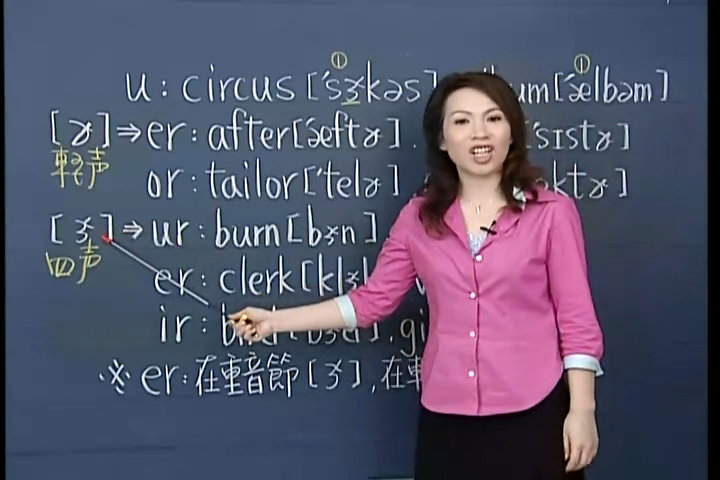 ① ①
u : circus ['sɝkəs] um ['ælbəm]
[ɚ] ⇒ er : after ['æftɚ] . ['sɪstɚ]
輕声 or : tailor ['telɚ] ktɚ]
[ɝ] ⇒ ur : burn [bɝn]
四声 er : clerk [klɝ
ir : gi
※ er : 在重音節 [ɝ] , 在